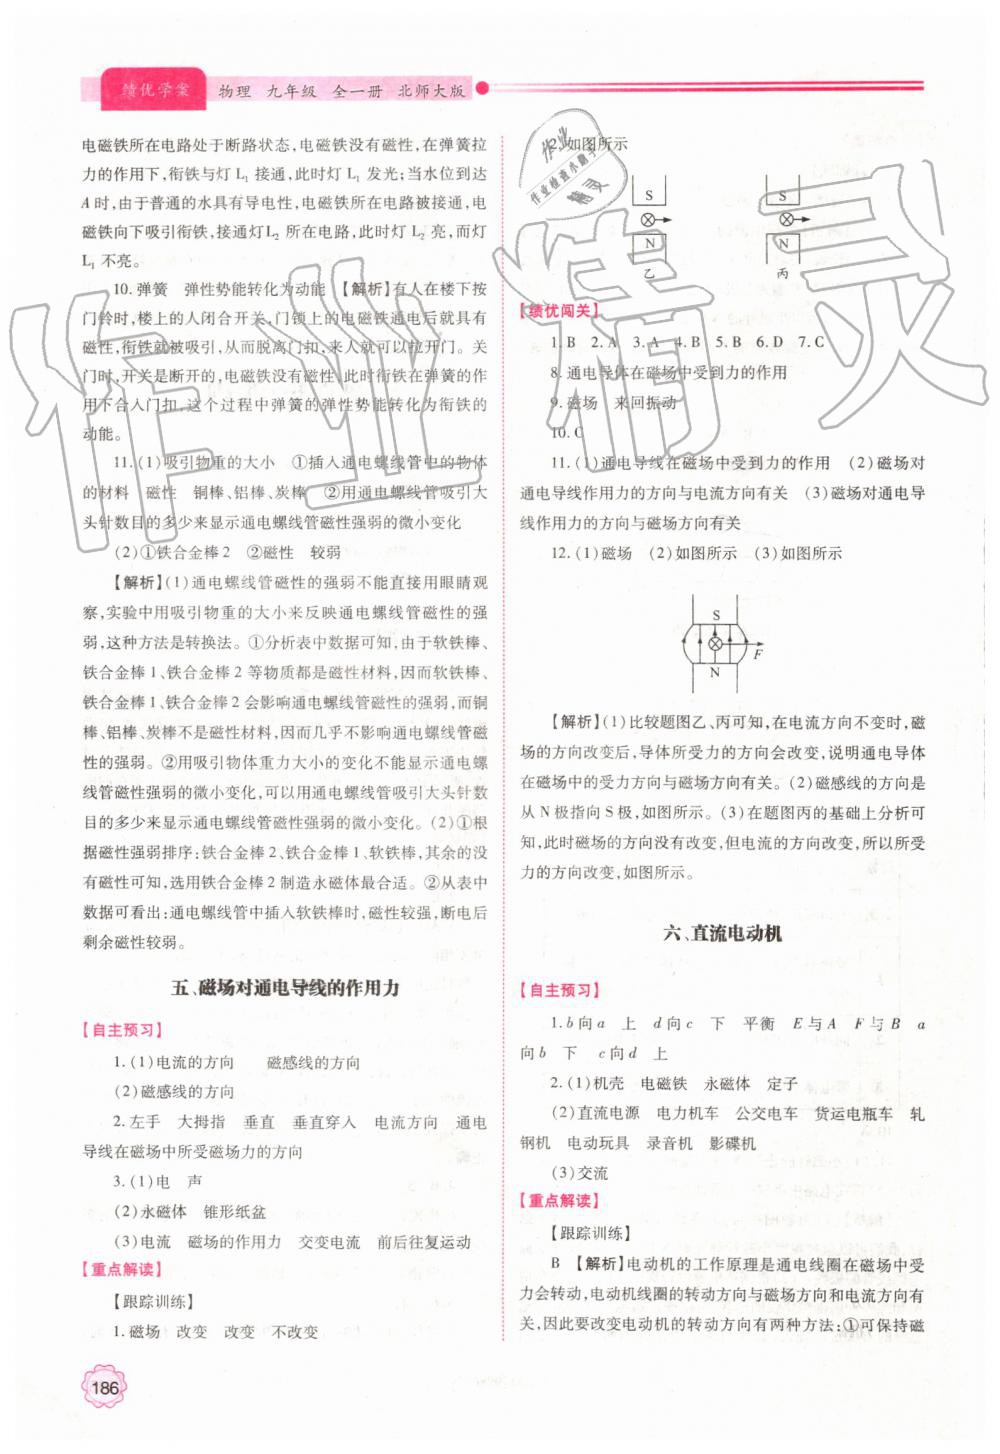 绩优学案 物理 九年级 全一册 北师大版
电磁铁所在电路处于断路状态,电磁铁没有磁性,在弹簧拉
力的作用下,衔铁与灯 L₁ 接通,此时灯 L₁ 发光;当水位到达
A 时,由于普通的水具有导电性,电磁铁所在电路被接通,电
磁铁向下吸引衔铁,接通灯L₂ 所在电路,此时灯 L₂ 亮,而灯
L₁ 不亮。
10. 弹簧 弹性势能转化为动能 【解析】有人在楼下按
门铃时,楼上的人闭合开关,门锁上的电磁铁通电后就具有
磁性,衔铁就被吸引,从而脱离门扣,来人就可以拉开门。关
门时,开关是断开的,电磁铁没有磁性,此时衔铁在弹簧的作
用下合入门扣,这个过程中弹簧的弹性势能转化为衔铁的
动能。
11. (1)吸引物重的大小 ①插入通电螺线管中的物体
的材料 磁性 铜棒、铝棒、炭棒 ②用通电螺线管吸引大
头针数目的多少来显示通电螺线管磁性强弱的微小变化
(2)①铁合金棒 2 ②磁性 较弱
【解析】(1)通电螺线管磁性的强弱不能直接用眼睛观
察,实验中用吸引物重的大小来反映通电螺线管磁性的强
弱,这种方法是转换法。①分析表中数据可知,由于软铁棒、
铁合金棒 1、铁合金棒 2 等物质都是磁性材料,因而软铁棒、
铁合金棒 1、铁合金棒 2 会影响通电螺线管磁性的强弱,而铜
棒、铝棒、炭棒不是磁性材料,因而几乎不影响通电螺线管磁
性的强弱。②用吸引物体重力大小的变化不能显示通电螺
线管磁性强弱的微小变化,可以用通电螺线管吸引大头针数
目的多少来显示通电螺线管磁性强弱的微小变化。(2)①根
据磁性强弱排序:铁合金棒 2、铁合金棒 1、软铁棒,其余的没
有磁性可知,选用铁合金棒 2 制造永磁体最合适。②从表中
数据可看出:通电螺线管中插入软铁棒时,磁性较强,断电后
剩余磁性较弱。
五、磁场对通电导线的作用力
【自主预习】
1. (1)电流的方向 磁感线的方向
(2)磁感线的方向
2. 左手 大拇指 垂直 垂直穿入 电流方向 通电
导线在磁场中所受磁场力的方向
3. (1)电 声
(2)永磁体 锥形纸盆
(3)电流 磁场的作用力 交变电流 前后往复运动
【重点解读】
【跟踪训练】
1. 磁场 改变 改变 不改变
186
2. 如图所示
S
N
乙
S
N
丙
【绩优闯关】
1. B 2. A 3. A 4. B 5. B 6. D 7. C
8. 通电导体在磁场中受到力的作用
9. 磁场 来回振动
10. C
11. (1)通电导线在磁场中受到力的作用 (2)磁场对
通电导线作用力的方向与电流方向有关 (3)磁场对通电导
线作用力的方向与磁场方向有关
12. (1)磁场 (2)如图所示 (3)如图所示
S
F
N
【解析】(1)比较题图乙、丙可知,在电流方向不变时,磁
场的方向改变后,导体所受力的方向会改变,说明通电导体
在磁场中的受力方向与磁场方向有关。(2)磁感线的方向是
从 N 极指向 S 极,如图所示。(3)在题图丙的基础上分析可
知,此时磁场的方向没有改变,但电流的方向改变,所以所受
力的方向改变,如图所示。
六、直流电动机
【自主预习】
1. b 向 a 上 d 向 c 下 平衡 E 与 A F 与 B a
向 b 下 c 向 d 上
2. (1)机壳 电磁铁 永磁体 定子
(2)直流电源 电力机车 公交电车 货运电瓶车 轧
钢机 电动玩具 录音机 影碟机
(3)交流
【重点解读】
【跟踪训练】
B 【解析】电动机的工作原理是通电线圈在磁场中受
力会转动,电动机线圈的转动方向与磁场方向和电流方向有
关,因此要改变电动机的转动方向有两种方法:①可保持磁
作业
作业检查小助手
精灵
作业精灵